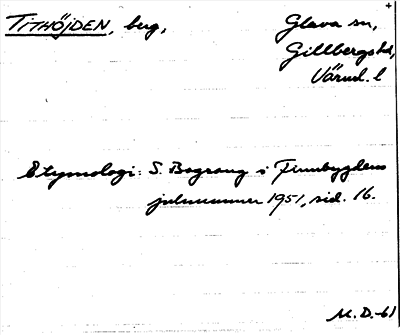 TITHÖJDEN, berg, Glava sn,
Gillbergs hd,
Värml. l
Etymologi: S. Bograng i Finnbygdens
julnummer 1951, sid. 16.
M. D. -61